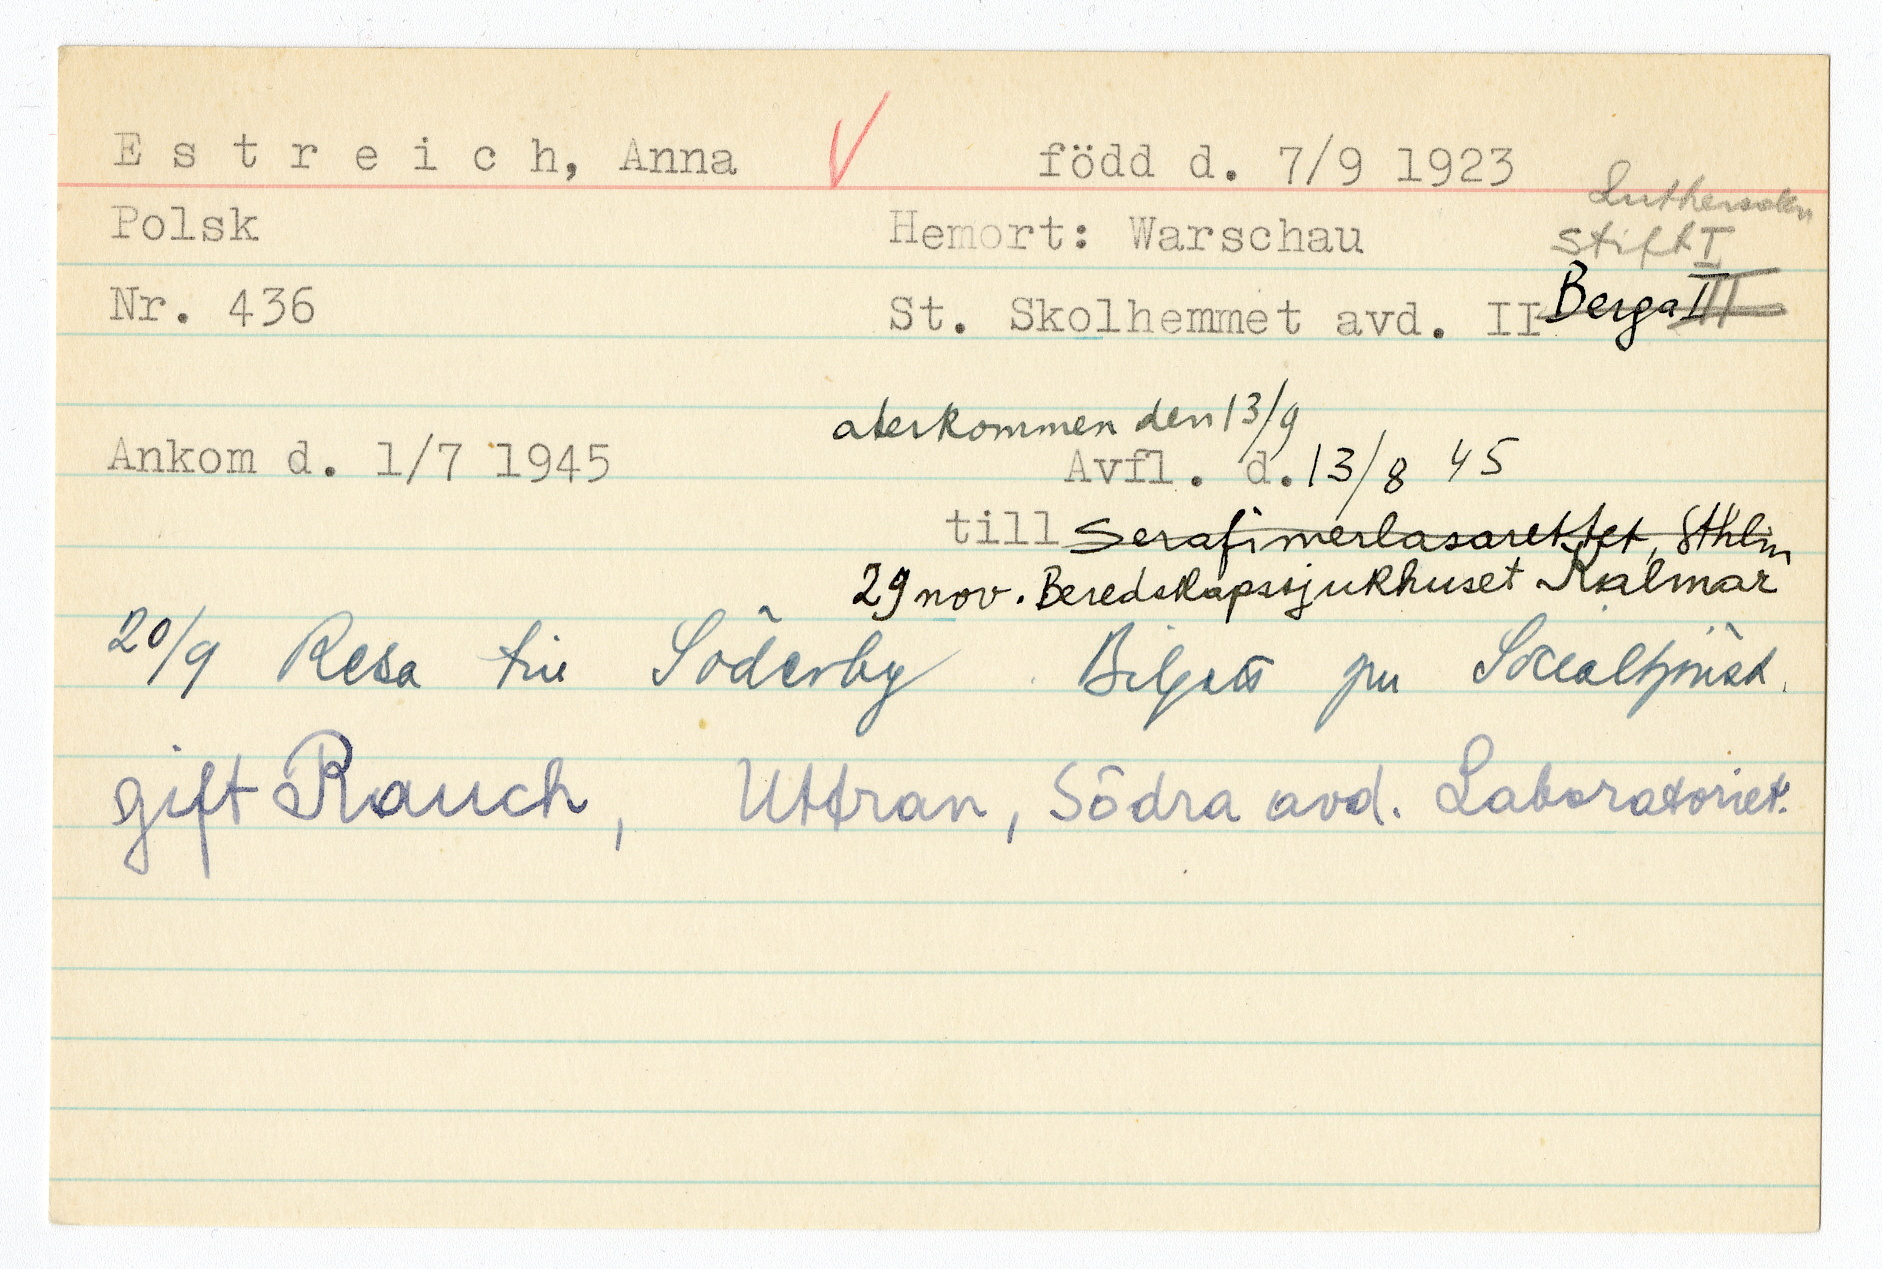 Estreich, Anna född d. 7/9 1923
Polsk Hemort: Warschau
Stift I
Nr. 436 St. Skolhemmet avd. II Berga III
återkommen den 13/9
Ankom d. 1/7 1945 Avfl. d. 13/8 45
till Serafimerlasarettet, Sthlm
29 nov. Beredskapssjukhuset Kalmar
20/9 Resa till Söderby
gift Rauch, Uttran, Södra avd. Laboratoriet.